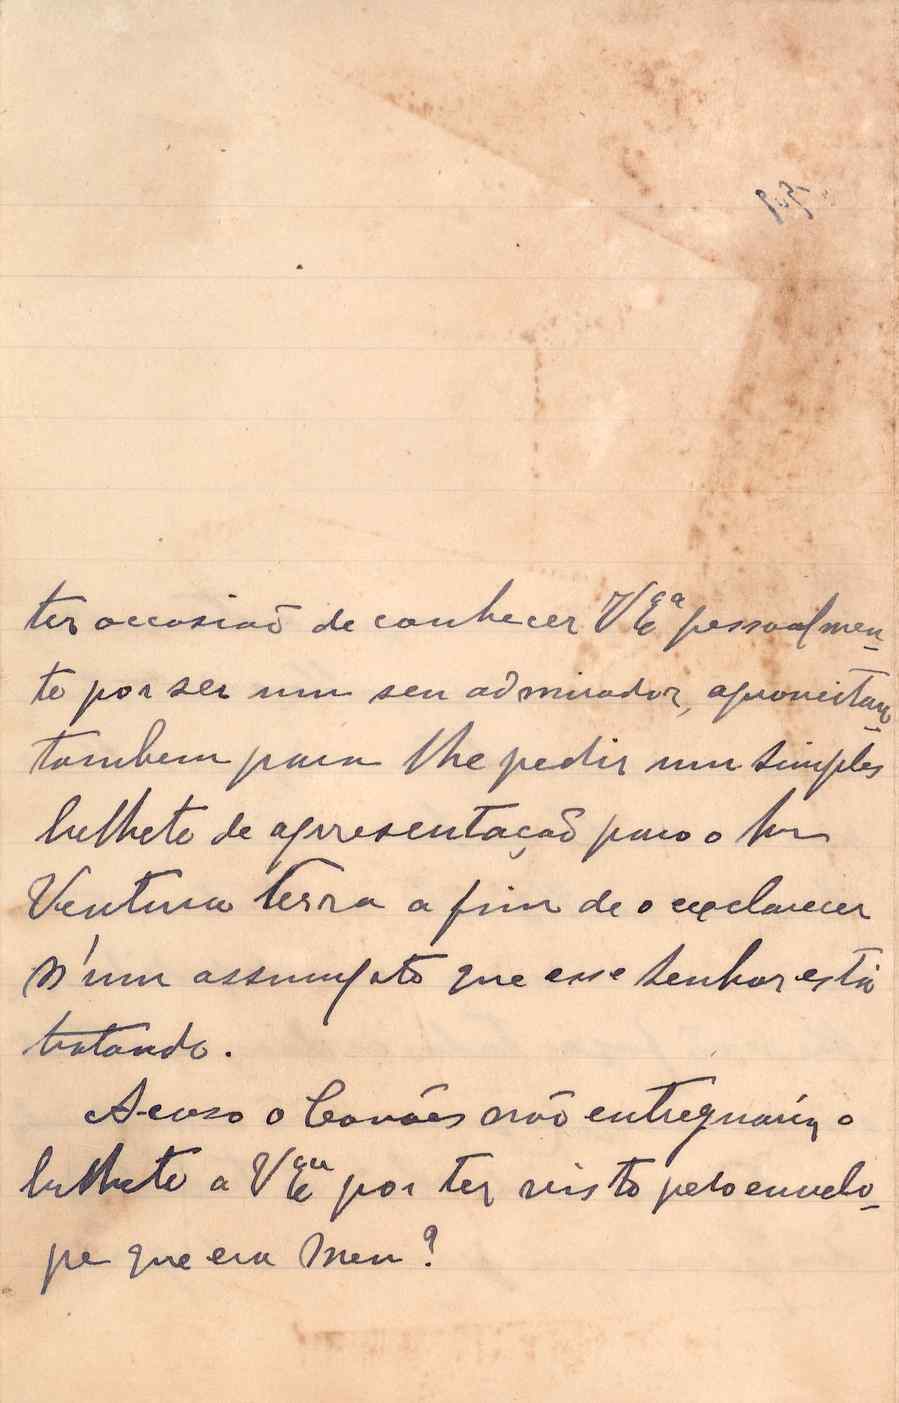 ter occasião de conhecer V Exª pessoalmen-
te por ser um seu admirador, aproveitan-
tambem para lhe pedir um simples
bilhete de apresentação para o Snr
Ventura terra a fim de o esclarecer
n'um assumpto que esse senhor está
tratando.
Acaso o Covões não entreguaria o
bilhete a V Exª por ter visto pelo envelo-
pe que era meu?